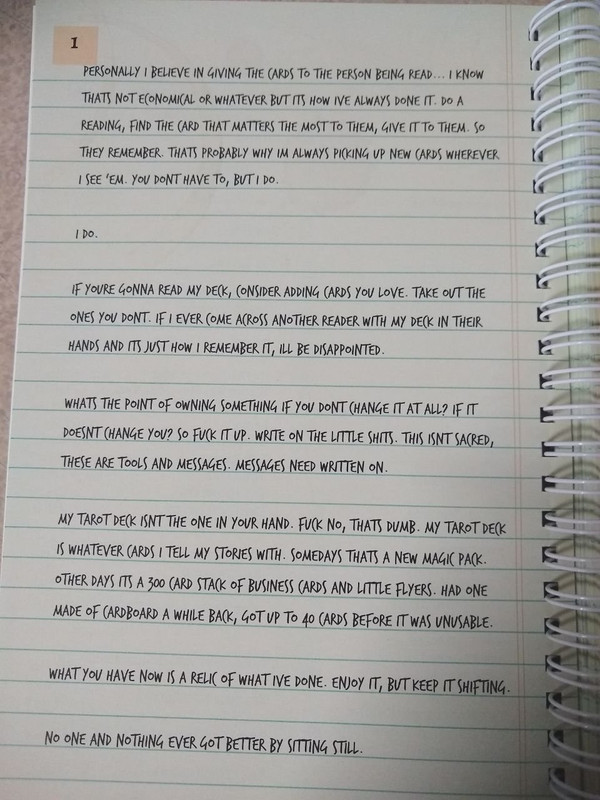 1
PERSONALLY I BELIEVE IN GIVING THE CARDS TO THE PERSON BEING READ... I KNOW
THATS NOT ECONOMICAL OR WHATEVER BUT ITS HOW IVE ALWAYS DONE IT. DO A
READING, FIND THE CARD THAT MATTERS THE MOST TO THEM, GIVE IT TO THEM. SO
THEY REMEMBER. THATS PROBABLY WHY IM ALWAYS PICKING UP NEW CARDS WHEREVER
I SEE 'EM. YOU DONT HAVE TO, BUT I DO.
I DO.
IF YOURE GONNA READ MY DECK, CONSIDER ADDING CARDS YOU LOVE. TAKE OUT THE
ONES YOU DONT. IF I EVER COME ACROSS ANOTHER READER WITH MY DECK IN THEIR
HANDS AND ITS JUST HOW I REMEMBER IT, ILL BE DISAPPOINTED.
WHATS THE POINT OF OWNING SOMETHING IF YOU DONT CHANGE IT AT ALL? IF IT
DOESNT CHANGE YOU? SO FUCK IT UP. WRITE ON THE LITTLE SHITS. THIS ISNT SACRED,
THESE ARE TOOLS AND MESSAGES. MESSAGES NEED WRITTEN ON.
MY TAROT DECK ISNT THE ONE IN YOUR HAND. FUCK NO, THATS DUMB. MY TAROT DECK
IS WHATEVER CARDS I TELL MY STORIES WITH. SOMEDAYS THATS A NEW MAGIC PACK.
OTHER DAYS ITS A 300 CARD STACK OF BUSINESS CARDS AND LITTLE FLYERS. HAD ONE
MADE OF CARDBOARD A WHILE BACK, GOT UP TO 40 CARDS BEFORE IT WAS UNUSABLE.
WHAT YOU HAVE NOW IS A RELIC OF WHAT IVE DONE. ENJOY IT, BUT KEEP IT SHIFTING.
NO ONE AND NOTHING EVER GOT BETTER BY SITTING STILL.